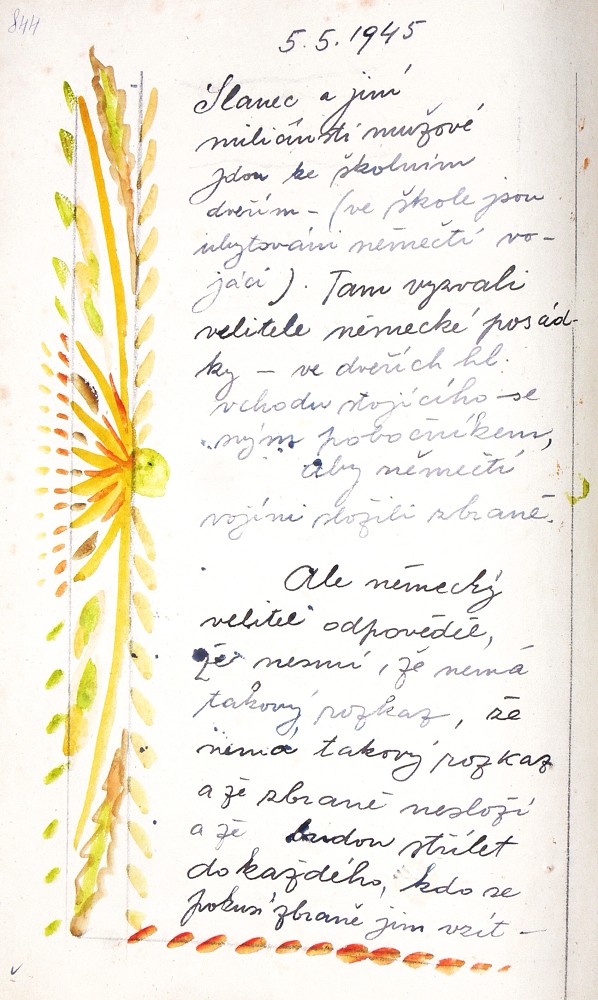 844
5.5.1945
Slanec a jiní
miličností mužové
jdou ke školním
dveřím – (ve škole jsou
ubytováni němečtí vo-
jáci). Tam vyzvali
velitele německé posád-
ky – ve dveřích hl.
vchodu stojícího – se
svým pobočníkem,
aby němečtí
vojíni složili zbraně.
Ale německý
velitel odpověděl,
že nesmí, že nemá
takový rozkaz, že
nemá takový rozkaz
a že zbraně nesloží
a že budou střílet
do každého, kdo se
pokusí zbraně jim vzít –